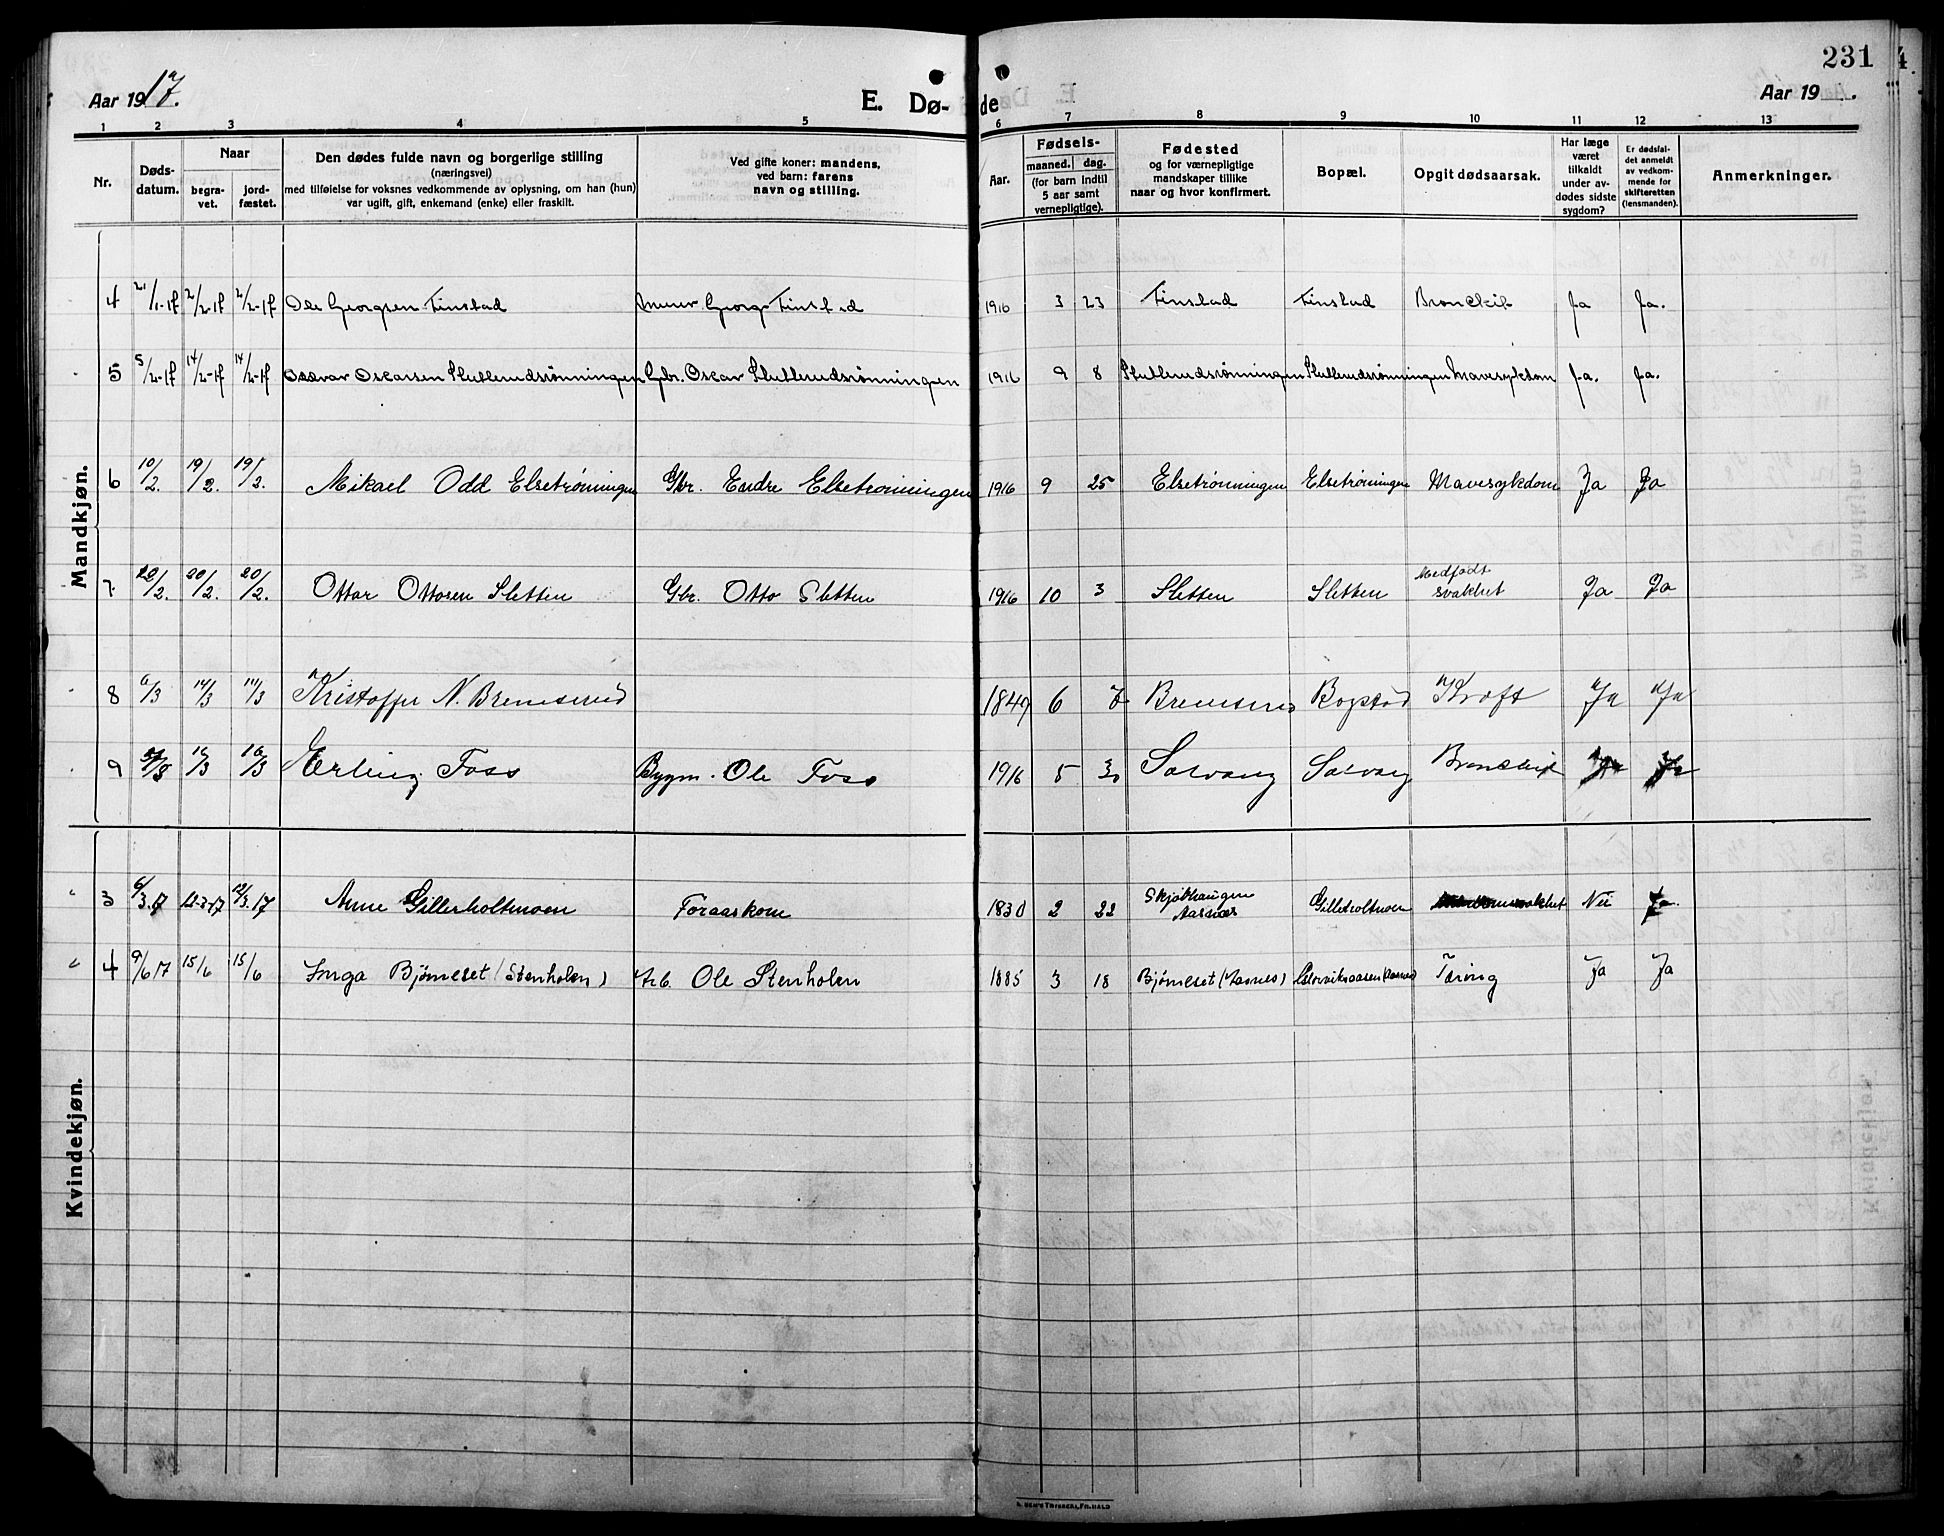 231
Aar 1917. E. Dø- de Aar 19 .
1 2 3 4 5 6 7 8 9 10 11 12 13
Nr.
Døds-
datum.
Naar
begra-
vet.
jord-
fæstet.
Den dødes fulde navn og borgerlige stilling
(næringsvei)
med tilføielse for voksnes vedkommende av oplysning, om han (hun)
var ugift, gift, enkemand (enke) eller fraskilt.
Ved gifte koner: mandens,
ved barn: farens
navn og stilling.
Aar.
Fødsels-
maaned. dag.
(for barn indtil
5 aar samt
vernepligtige).
Fødested
og for værnepligtige
mandskaper tillike
naar og hvor konfirmert.
Bopæl.
Opgit dødsaarsak.
Har læge
været
tilkaldt
under av-
dødes sidste
sygdom?
Er dødsfal-
det anmeldt
av vedkom-
mende for
skifteretten
(lensmanden).
Anmerkninger.
Mandkjøn.
4 21/1-17 2/2-17 2/2-17 Ole Georgsen Finstad Murer Georg Finstad 1916 3 23 Finstad Finstad Bronckit Ja Ja.
5 5/2-17 14/2-17 14/2-17 Oskarsen Skullerudsrønningen Gbr. Oskar Skullerudsrønningen 1916 9 8 Skullerudsrønningen Skullerudsrønningen Mavesykdom Ja. Ja.
6 10/2. 19/2. 19/2. Mikael Odd Elsetrønningen Gbr. Endre Elsetrønningen 1916 9 25 Elsetrønningen Elsetrønningen Mavesykdom Ja Ja
7. /2. 20/2. 20/2. Ottar Ottosen Sletten Gbr. Otto Sletten 1916 10 3 Sletten Sletten Medfødt
svakhet Ja Ja
8 6/3 14/3 14/3 Kristoffer N. Bremserud 1849 6 7 Bremserud Bogstad Kræft Ja Ja
9 16/3 16/3 Erling Foss Bygm. Ole Foss 1916 5 30 Solvang Solvang Bronckit Ja Ja
Kvindekjøn.
3 6/3.17 12-3-17 12/3.17 Anne Gillerholtmoen Foraaskone 1830 2 22 Skjølhaugen
Aasnæs Gilleholtmoen Nei Ja
4 9/6 17 15/6 15/6 Inga Bjørneset (Stenholen) Arb. Ole Stenholen 1885 3 18 Bjørneset (Aasnes) Tæring Ja Ja